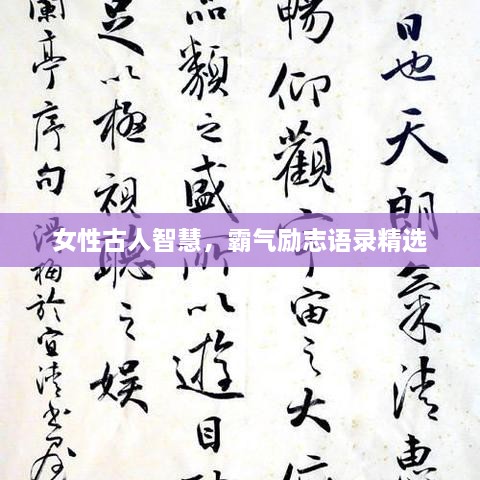 日也天朗氣清惠
暢仰觀宇宙之大俯
品類之盛所以遊目
足以極視聽之娛
蘭亭序句
女性古人智慧，霸气励志语录精选